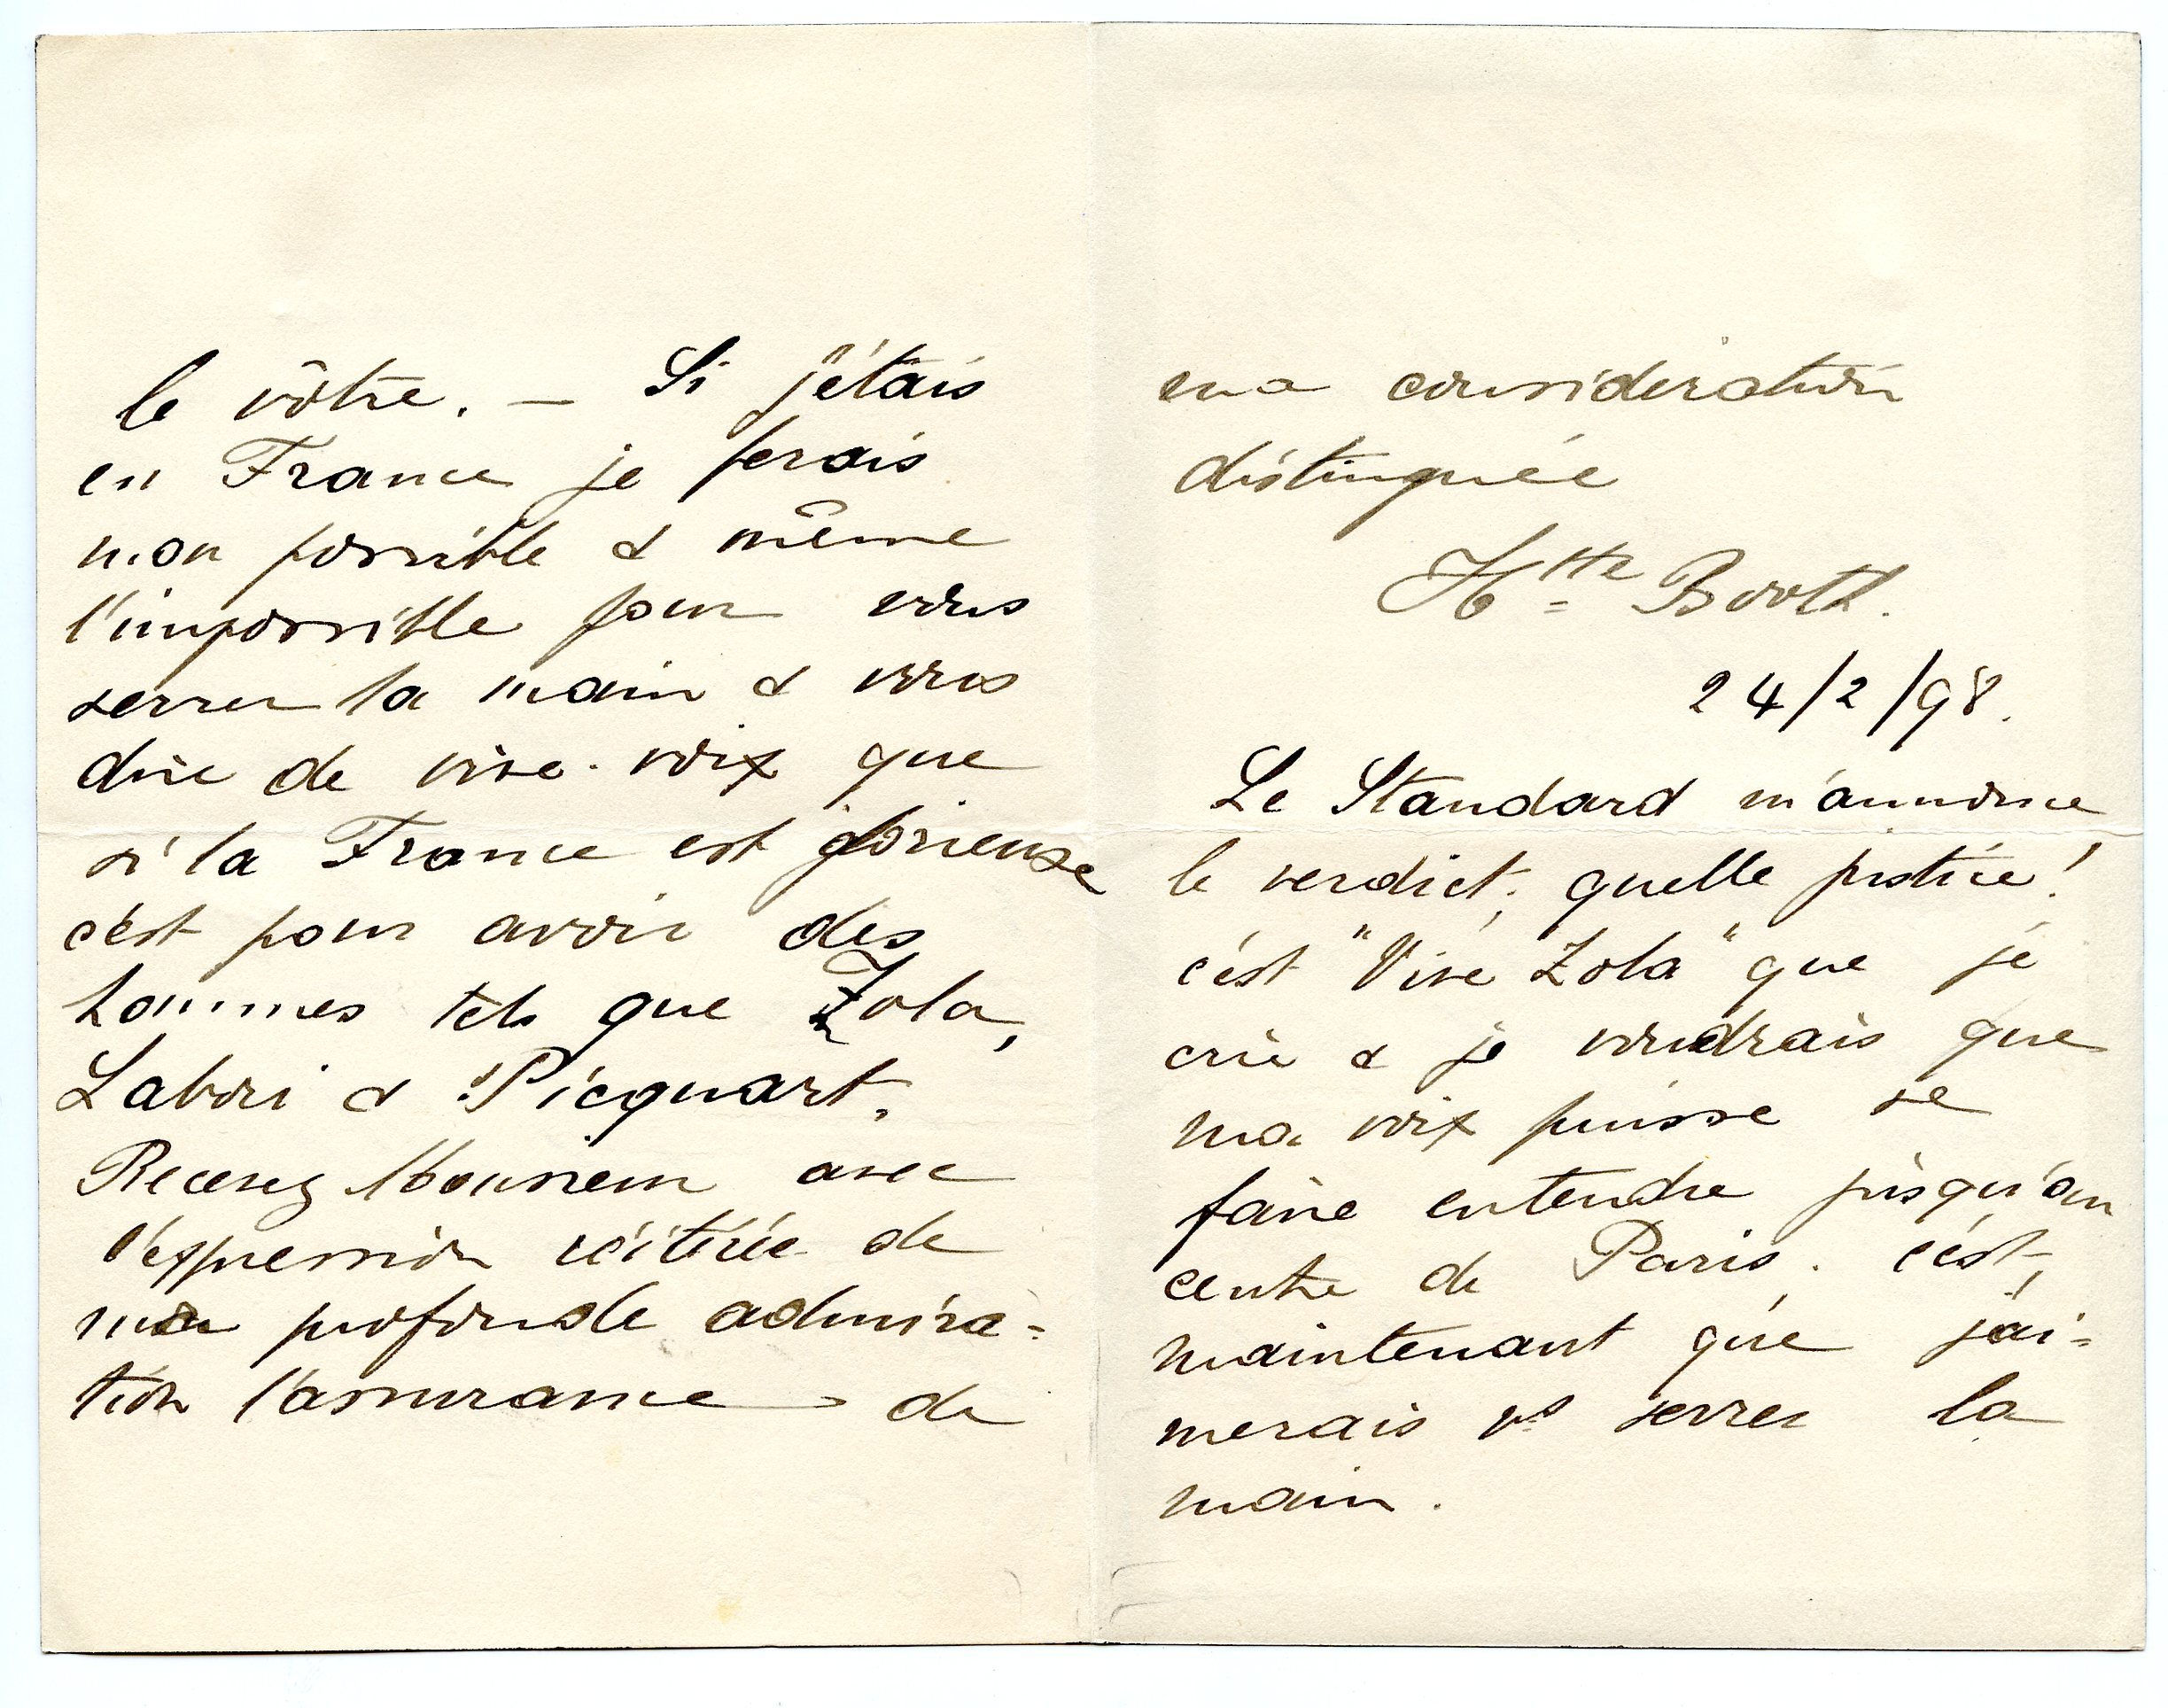 le vôtre. — Si j'étais
en France je ferais
mon possible & même
l'impossible pour vous
serrer la main & vous
dire de vive-voix que
si la France est glorieuse
c'est pour avoir des
hommes tels que Zola,
Labori & Picquart.
Recevez Monsieur avec
l'expression réitérée de
ma profonde admira-
tion l'assurance de
ma considération
distinguée
H^tte Booth.
24/2/98.
Le Standard m'annonce
le verdict; quelle justice!
c'est "Vive Zola" que je
crie & je voudrais que
ma voix puisse se
faire entendre jusqu'au
centre de Paris. c'est,
maintenant que j'ai-
merais vs serrer la
main.